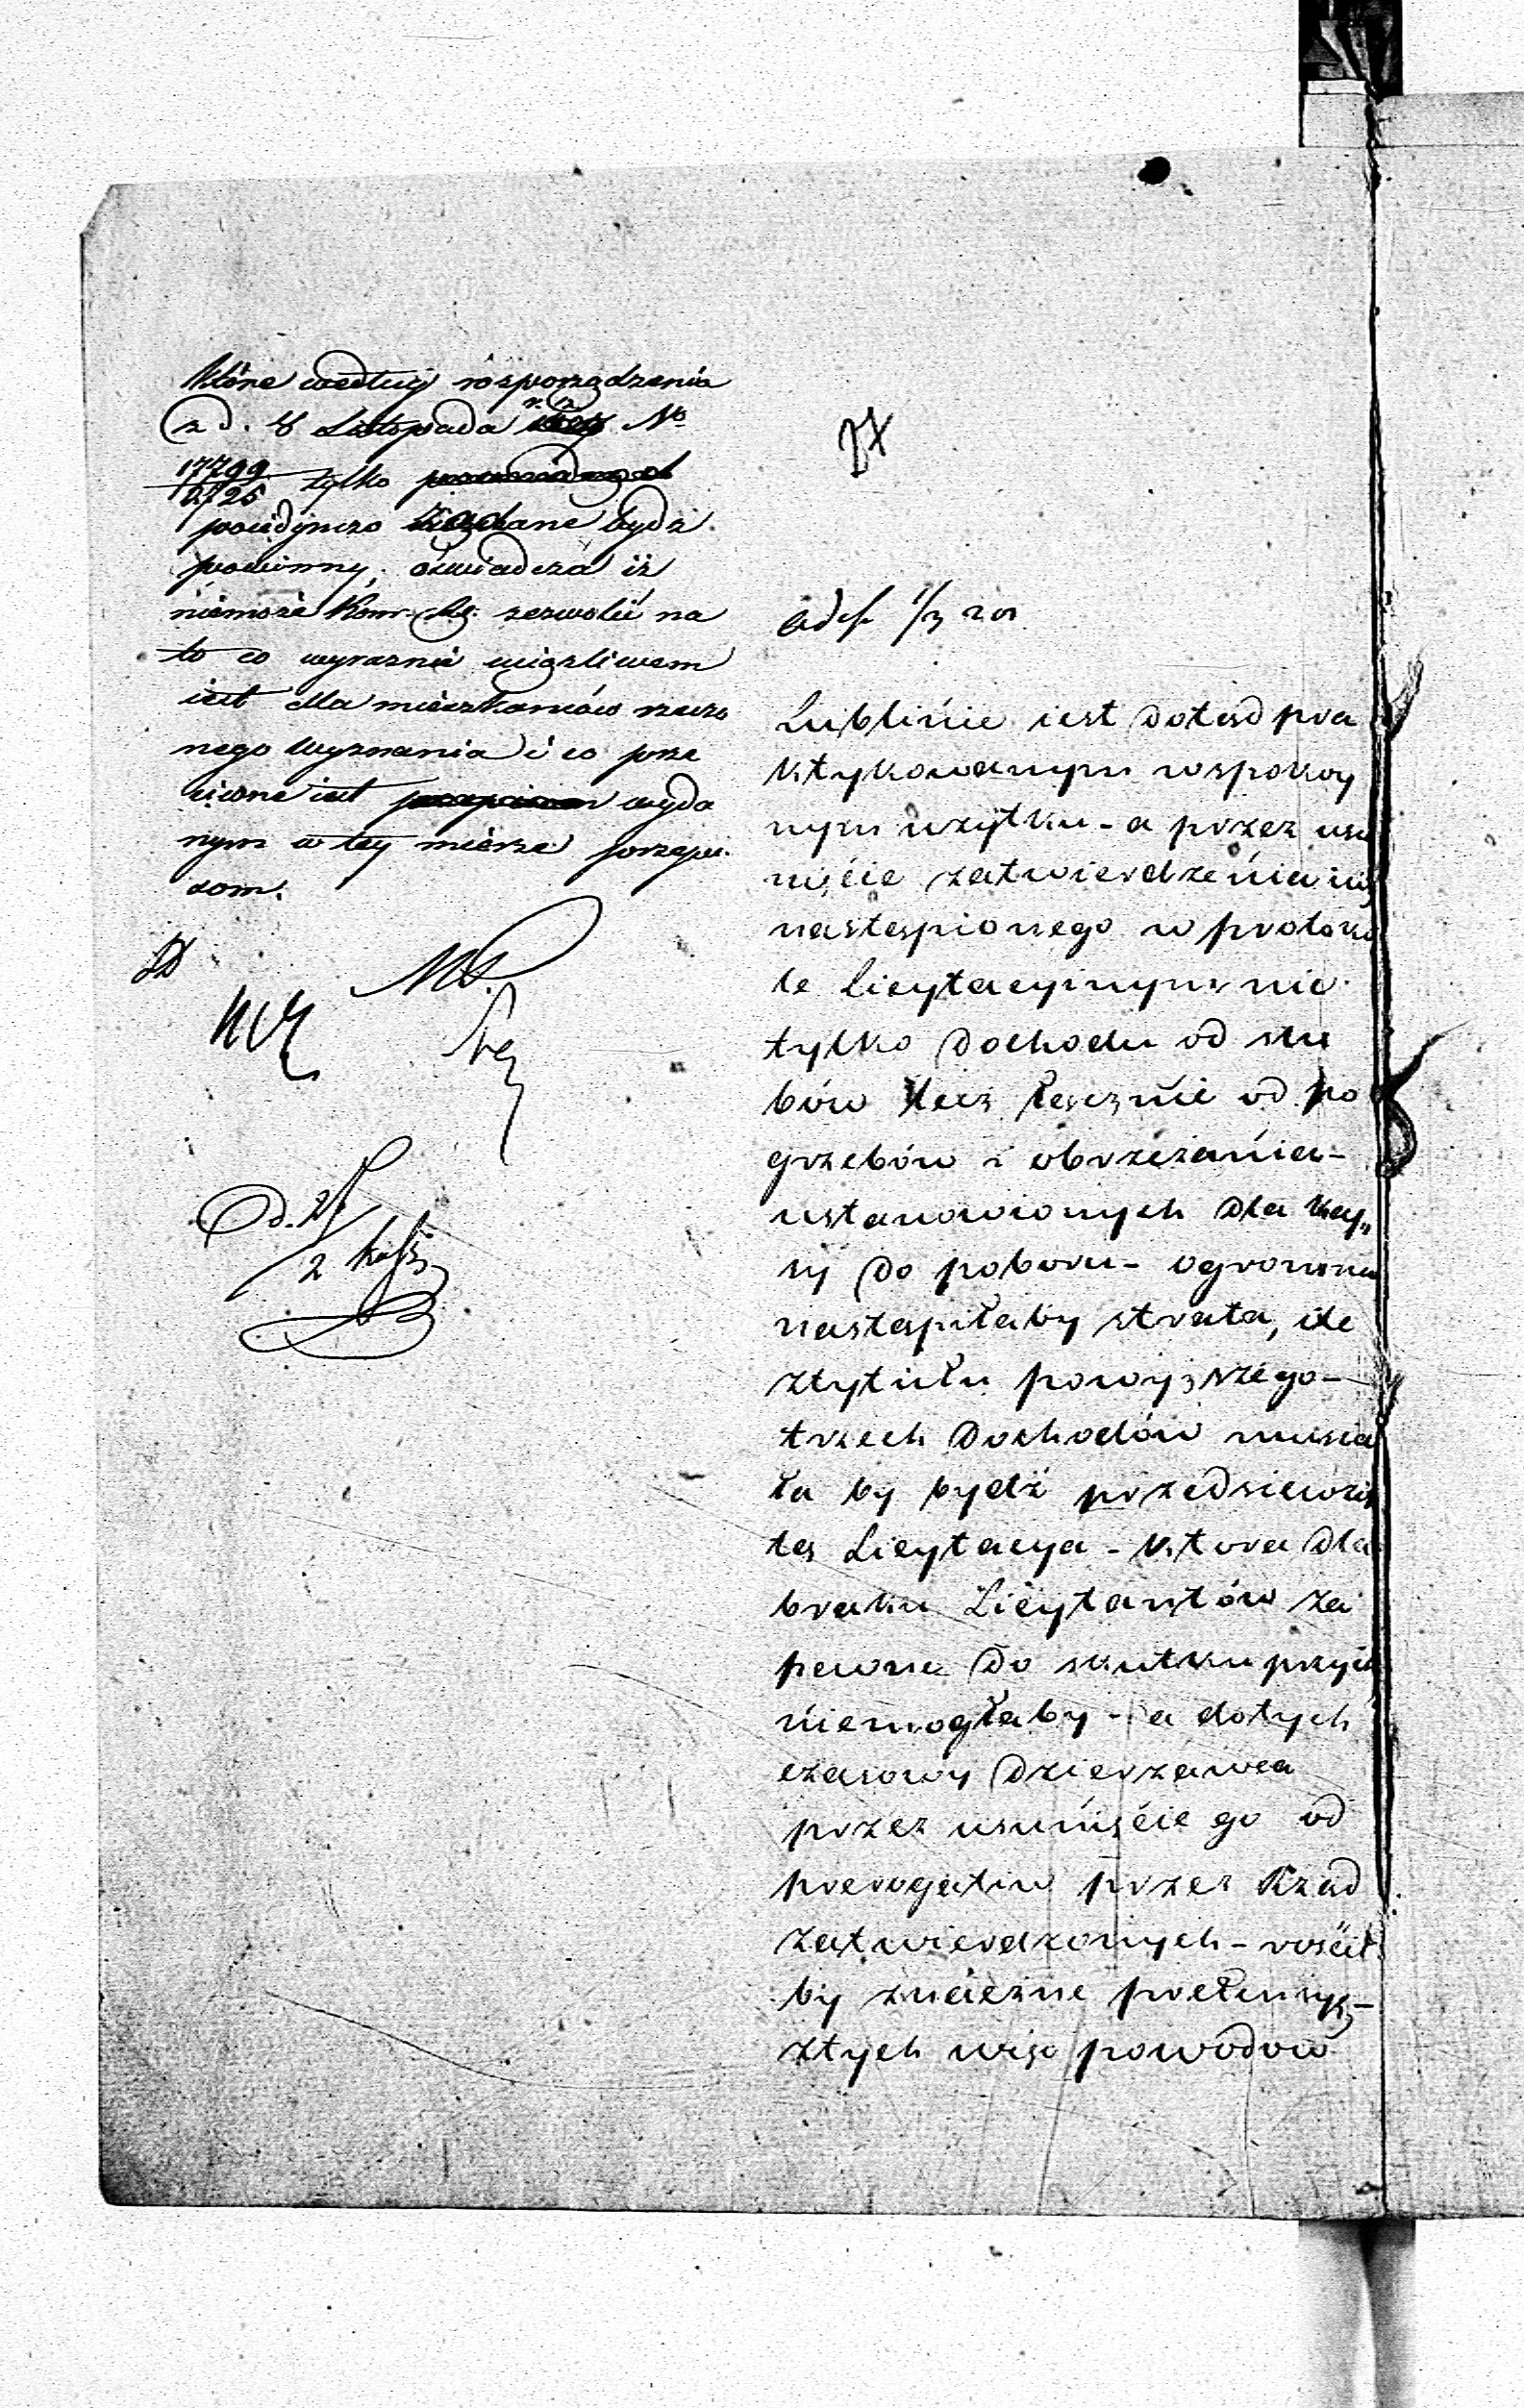 które według rosporządzenia
z d. 8 Listopada r. z. No
17799/2725 tylko
poiedynczo żądane bydź
powinny, oświadcza iż
niemoże Kom. Rz. zezwolić na
to co wyraźnie uciążliwem
iest dla mieszkańców rzeczo
nego Wyznania i co prze
ciwne iest wyda
nym w tey mierze przepi
som.
27
Lublinie iest dotąd pra
ktykowanym w spokoy
nym użytku - a przez usu
nięcie zatwierdzenia iuż
nastąpionego w protokó
le Licytacyinym nie
tylko dochodu od slu
bów lecz łącznie od po
grzebów i obrzezania -
ustanowionych dla Kas„
sy do poboru - ogromna
nastąpiłaby strata, ile
z tytułu powyższego -
trzech dochodów musia
ła by bydź przedsięwzię
tą Licytacya - która dla
braku Licytantów za
pewne do skutku przyiść
niemogłaby - a dotych
czasowy Dzierżawca
przez usunięcie go od
prerogatiw przez Rząd
zatwierdzonych - rościł
by znaczne pretensye -
z tych więc powodów